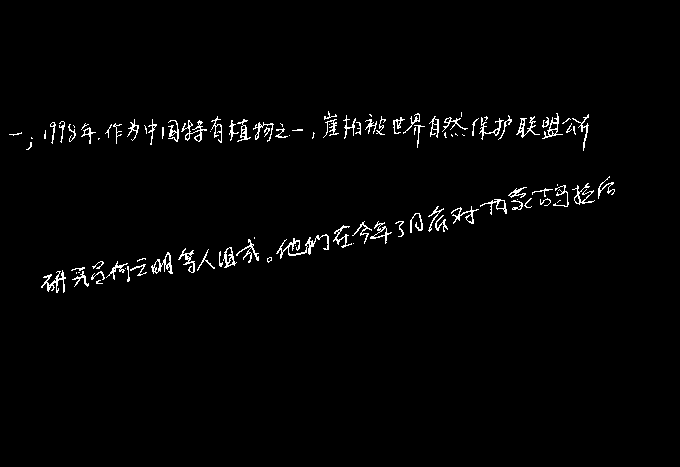 一,1998年.作为中国特有植物之一,崖柏被世界自然保护联盟公布
研究员何三明等人组成。他们在今年3月底对内蒙古乌拉后